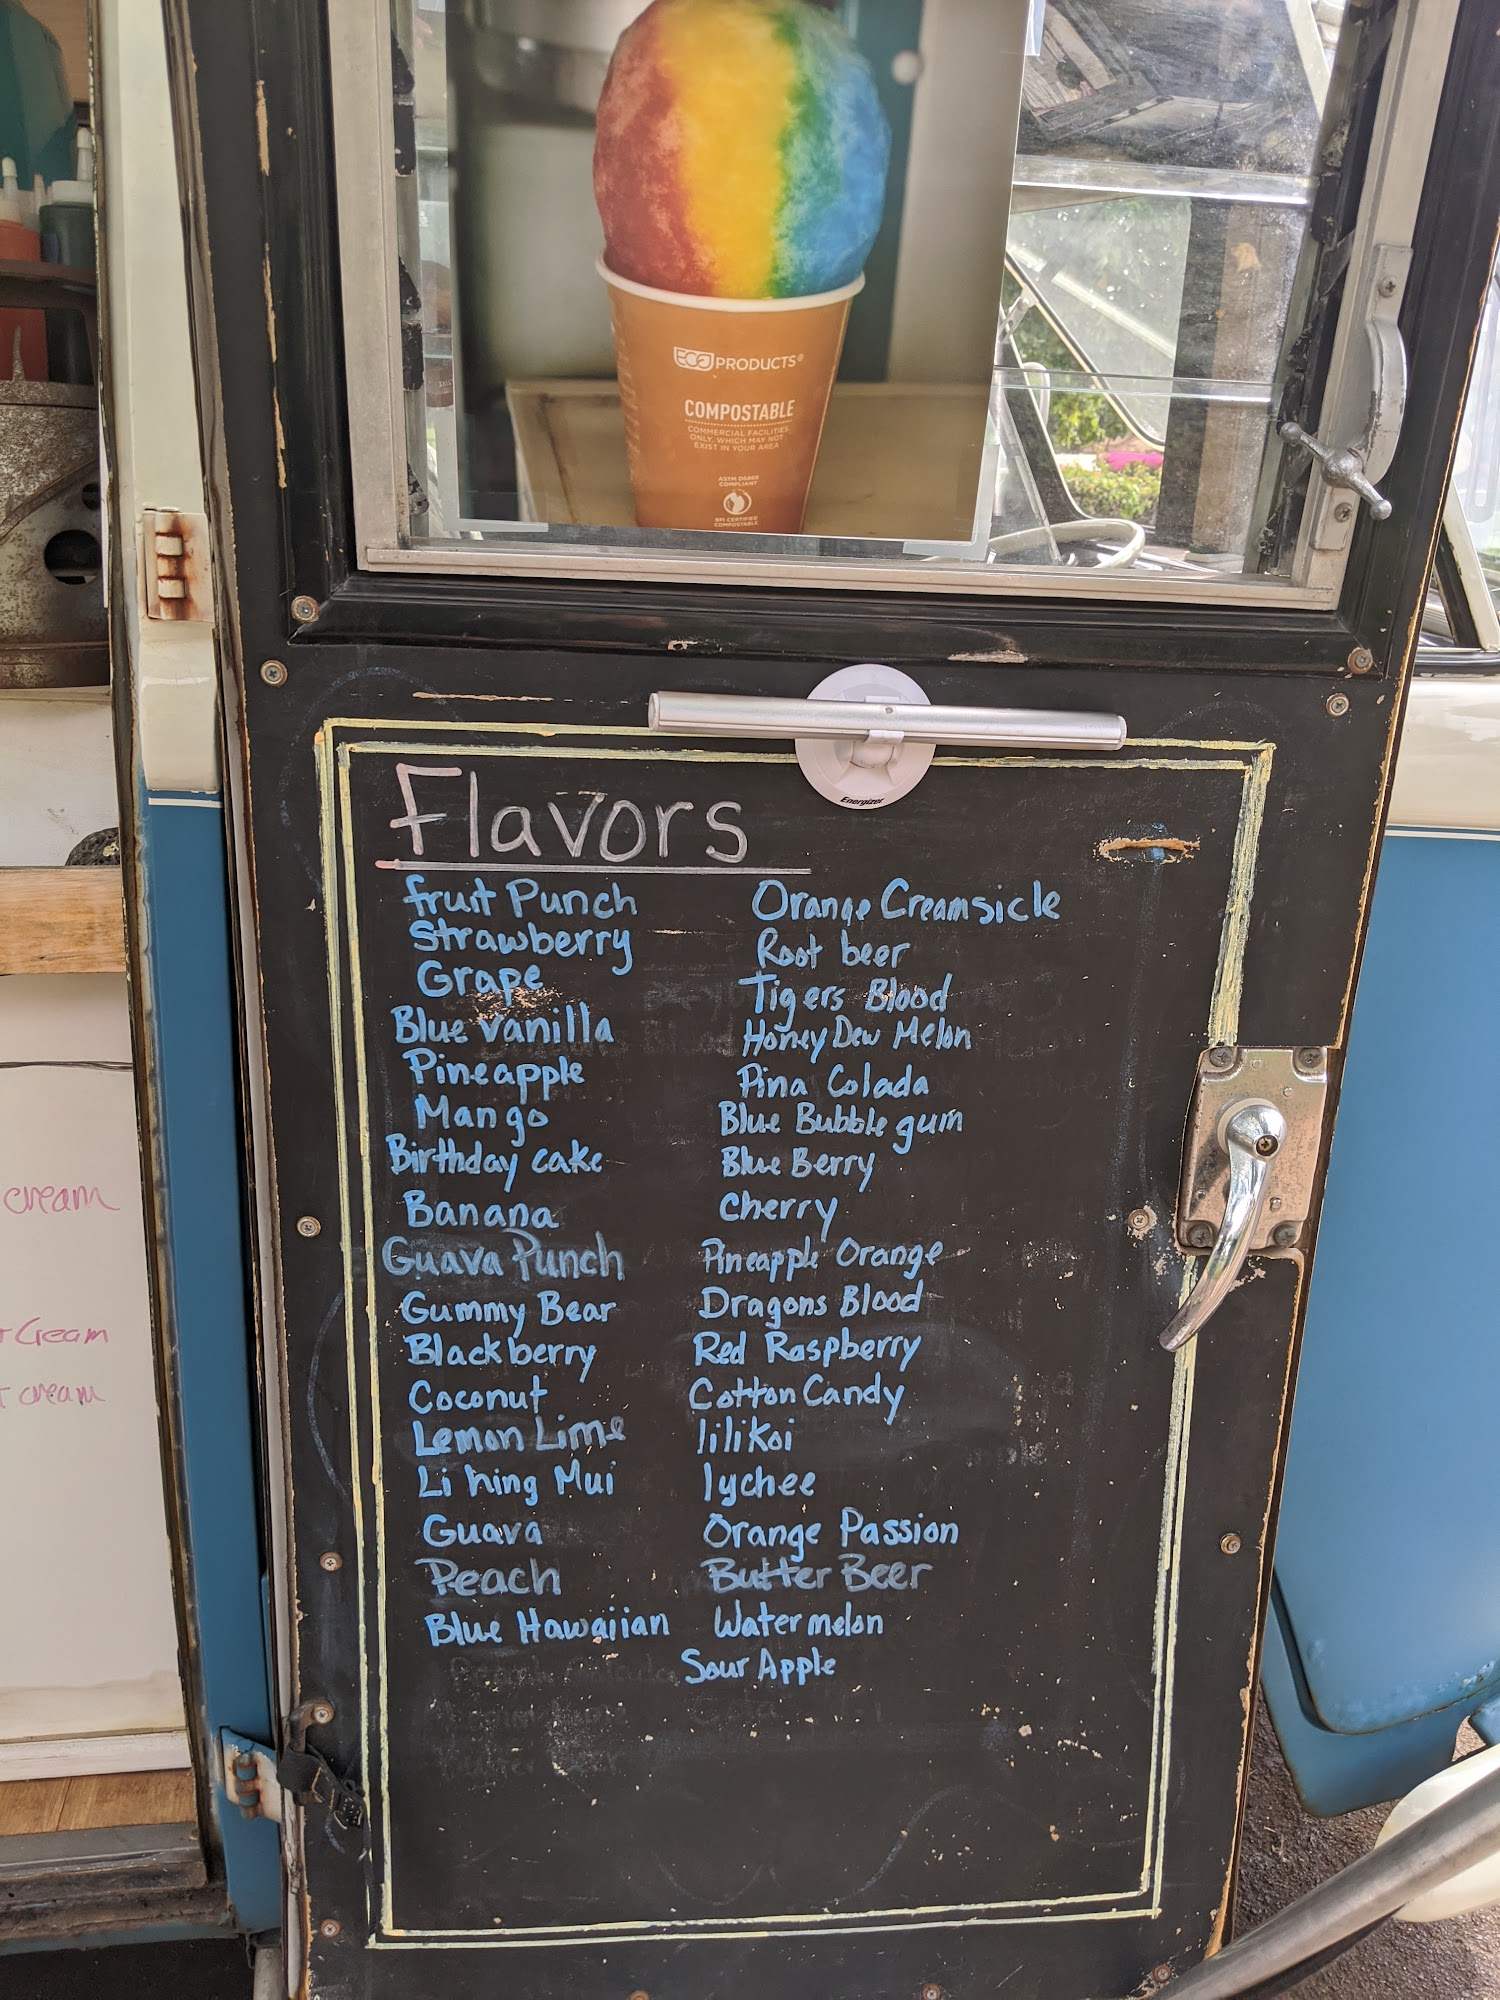 ECO PRODUCTS®
COMPOSTABLE
COMMERCIAL FACILITIES
ONLY, WHICH MAY NOT
EXIST IN YOUR AREA
ASTM D6868
COMPLIANT
BPI CERTIFIED
COMPOSTABLE
Energizer
Flavors
fruit Punch
Strawberry
Grape
Blue Vanilla
Pineapple
Mango
Birthday cake
Banana
Guava Punch
Gummy Bear
Blackberry
Coconut
Lemon Lime
Li hing Mui
Guava
Peach
Blue Hawaiian
Orange Creamsicle
Root beer
Tigers Blood
Honey Dew Melon
Pina Colada
Blue Bubble gum
Blue Berry
Cherry
Pineapple Orange
Dragons Blood
Red Raspberry
Cotton Candy
lilikoi
lychee
Orange Passion
Butter Beer
Watermelon
Sour Apple
cream
Cream
cream